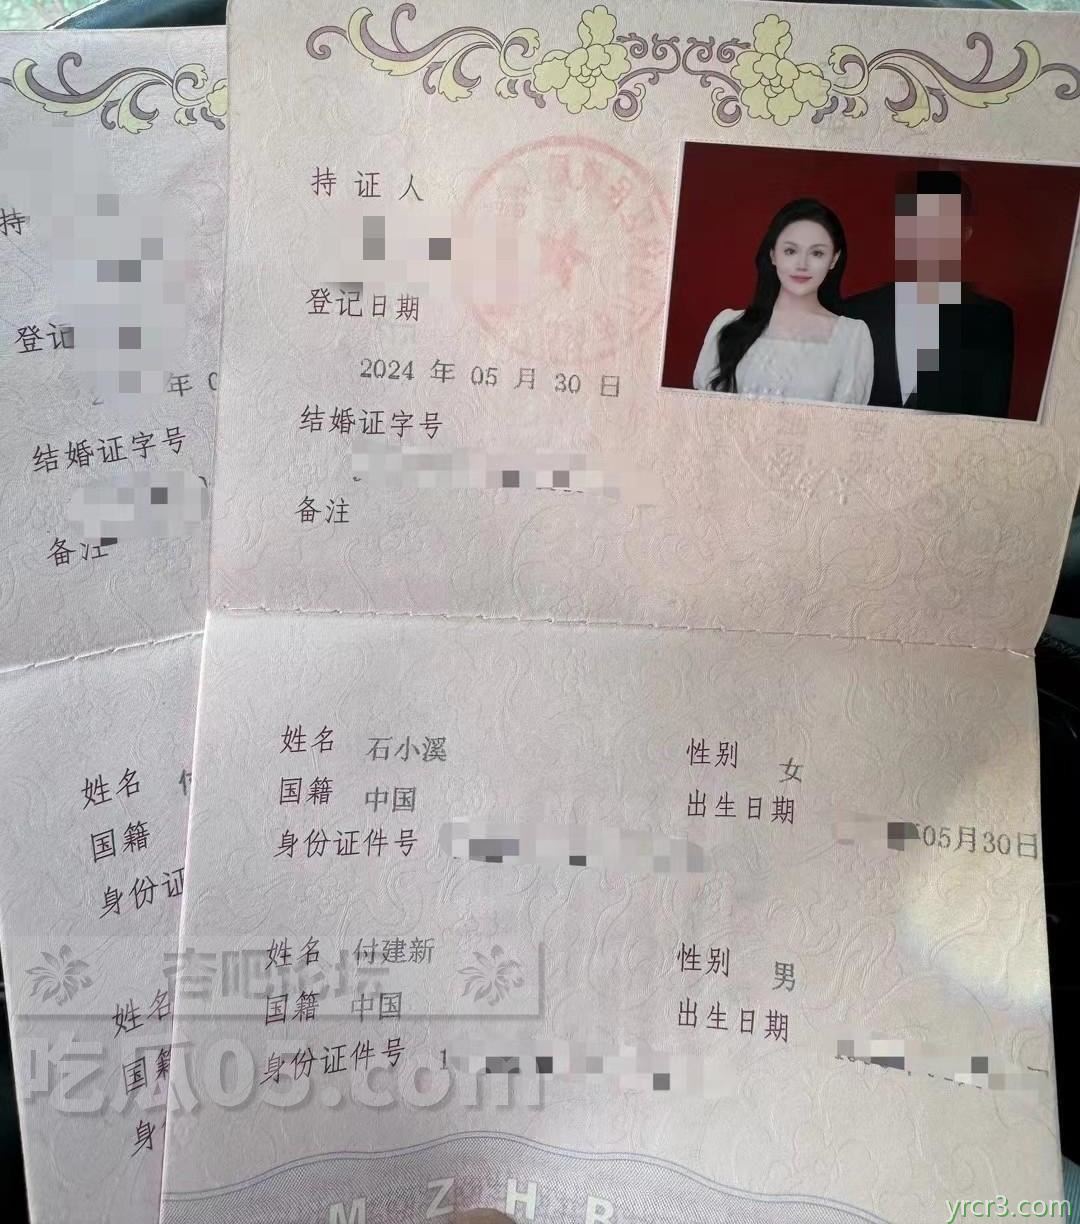 持证人
登记日期
2024 年 05 月 30 日
结婚证字号
备注
姓名 石小溪 性别 女
国籍 中国 出生日期 05月30日
身份证件号
姓名 付建新 性别 男
国籍 中国 出生日期
身份证件号 1
持
登记
年 0
结婚证字号
备注
姓名
国籍
身份证
姓名
国籍
身
杏吧论坛
吃瓜05.com
M Z H R
yrcr3.com